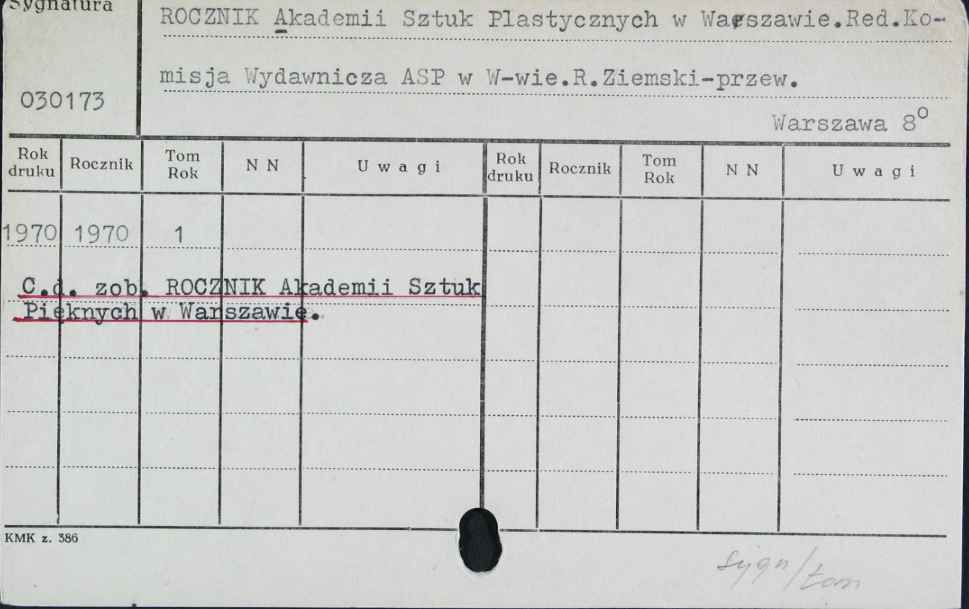 Sygnatura
ROCZNIK Akademii Sztuk Plastycznych w Warszawie.Red.Ko-
misja Wydawnicza ASP w W-wie.R.Ziemski-przew.
030173
Warszawa 8°
Rok druku Rocznik Tom Rok N N Uwagi Rok druku Rocznik Tom Rok N N Uwagi
1970 1970 1
C.d. zob. ROCZNIK Akademii Sztuk
Pięknych w Warszawie.
KMK z. 386
sygn/